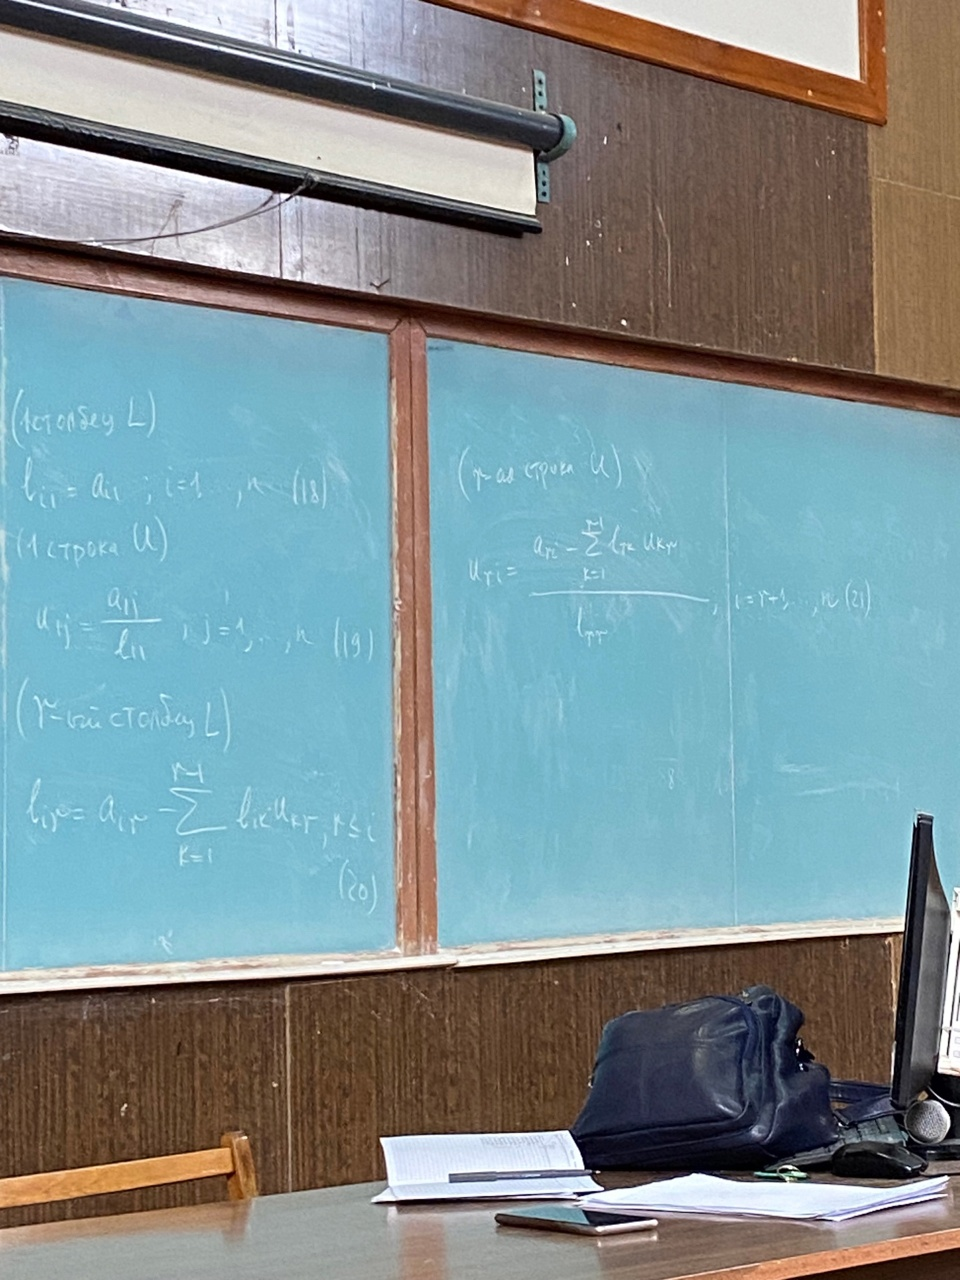 (1 столбец L)
l_{i1} = a_{i1} ; i=1, ..., n (18)
(1 строка U)
u_{1j} = \frac{a_{1j}}{l_{11}} , j=1, ..., n (19)
(r-ый столбец L)
l_{ir} = a_{ir} - \sum_{k=1}^{r-1} l_{ik} u_{kr}, r ≤ i
(20)
(r-ая строка U)
u_{ri} = \frac{a_{ri} - \sum_{k=1}^{r-1} l_{rk} u_{kr}}{l_{rr}} , i=r+1, ..., n (21)